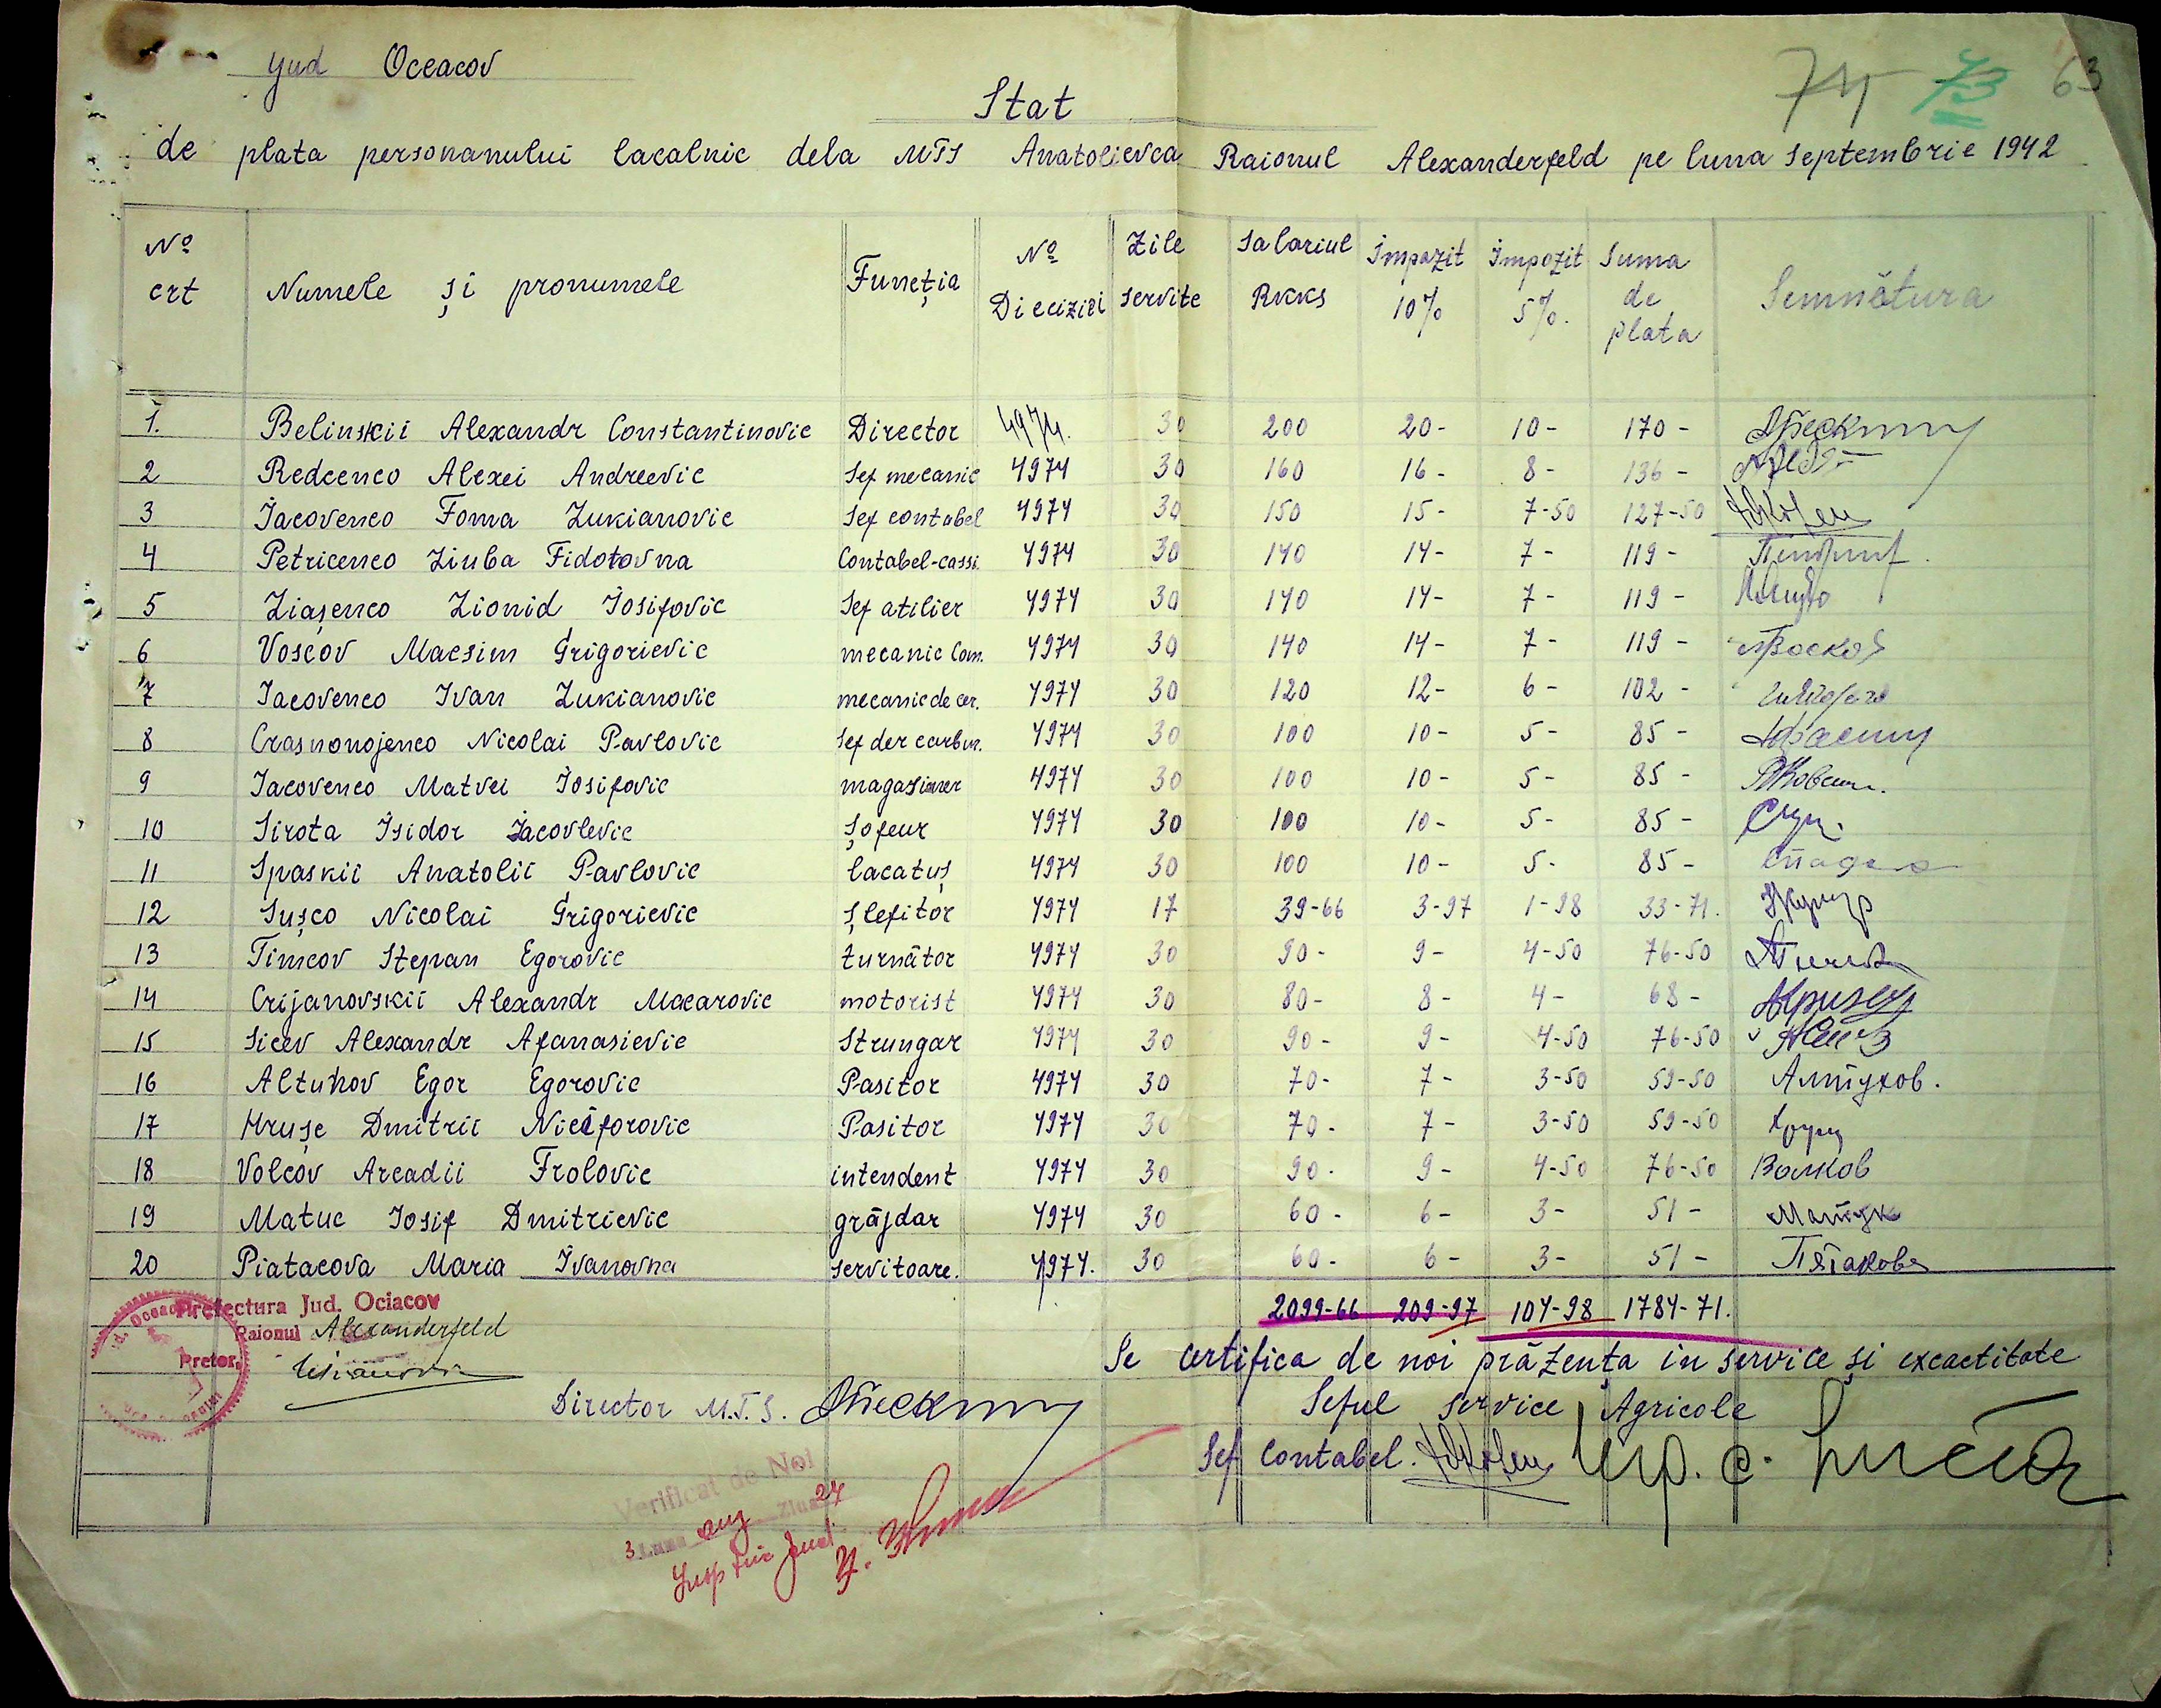 Jud Oceacov
74 73 63
Stat
de plata personanului lacalnic dela MTS Anatolievca Raionul Alexanderfeld pe luna Septembrie 1942
№ crt Numele și pronumele Funcția № Dieciziei Zile servite Salariul RKKS Impozit 10% Impozit 5%. Suma de plata Semnătura
1. Belinskii Alexandr Constantinovic Director 4974. 30 200 20- 10- 170-
2 Redcenco Alexei Andreevic Sef mecanic 4974 30 160 16- 8- 136-
3 Iacovenco Foma Lukianovic Sef contabel 4974 30 150 15- 7-50 127-50
4 Petricenco Liuba Fidotovna Contabel-cassi. 4974 30 140 14- 7- 119-
5 Liașenco Lionid Iosifovic Sef atilier 4974 30 140 14- 7- 119-
6 Voscov Macsim Grigorievic mecanic Com. 4974 30 140 14- 7- 119-
7 Iacovenco Ivan Lukianovic mecanic de cer. 4974 30 120 12- 6- 102-
8 Crasnonojenco Nicolai Pavlovic Sef der carbur. 4974 30 100 10- 5- 85-
9 Iacovenco Matvei Iosifovic magaziner 4974 30 100 10- 5- 85-
10 Sirota Isidor Iacovlevic Șofeur 4974 30 100 10- 5- 85-
11 Spaskii Anatolii Pavlovic lacatuș 4974 30 100 10- 5- 85-
12 Sușco Nicolai Grigorievic Șlefitor 4974 17 39-66 3-97 1-98 33-71.
13 Timcov Stepan Egorovic turnător 4974 30 90- 9- 4-50 76-50
14 Crijanovskii Alexandr Macarovic motorist 4974 30 80- 8- 4- 68-
15 Sicev Alexandr Afanasievic Strungar 4974 30 90- 9- 4-50 76-50
16 Altuhov Egor Egorovic Pasitor 4974 30 70- 7- 3-50 59-50 Алтухов.
17 Hrușc Dmitrii Niciforovic Pasitor 4974 30 70- 7- 3-50 59-50
18 Volcov Arcadii Frolovic intendent 4974 30 90- 9- 4-50 76-50 Волков
19 Matuc Iosif Dmitrievic grăjdar 4974 30 60- 6- 3- 51- Матук
20 Piatacova Maria Ivanovna servitoare. 4974. 30 60- 6- 3- 51- Пятакова
2099-66 209-97 104-98 1784-71.
Prefectura Jud. Ociacov
Raionul Alexanderfeld
Pretor,
Se certifica de noi prăzența in service și excactitate
Director M.T.S.
Seful service Agricole
Sef Contabel.
Verificat de Noi
Luna aug Ziua 24